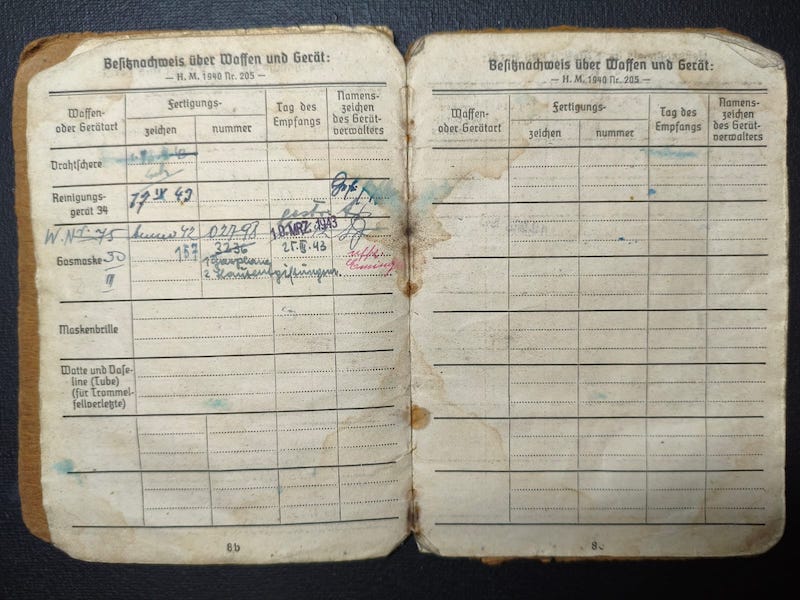 Besitznachweis über Waffen und Gerät:
— H. M. 1940 Nr. 205 —
Waffen-
oder Gerätart
Fertigungs-
zeichen
nummer
Tag des
Empfangs
Namens-
zeichen
des Gerät-
verwalters
Drahtschere
Reinigungs-
gerät 34
43
W. Nr. 75
42
02798
10. MRZ. 1943
Gasmaske 30
157
3236
21. III. 43
III
Maskenbrille
Watte und Vase-
line (Tube)
(für Trommel-
fellverletzte)
8b
Besitznachweis über Waffen und Gerät:
— H. M. 1940 Nr. 205 —
Waffen-
oder Gerätart
Fertigungs-
zeichen
nummer
Tag des
Empfangs
Namens-
zeichen
des Gerät-
verwalters